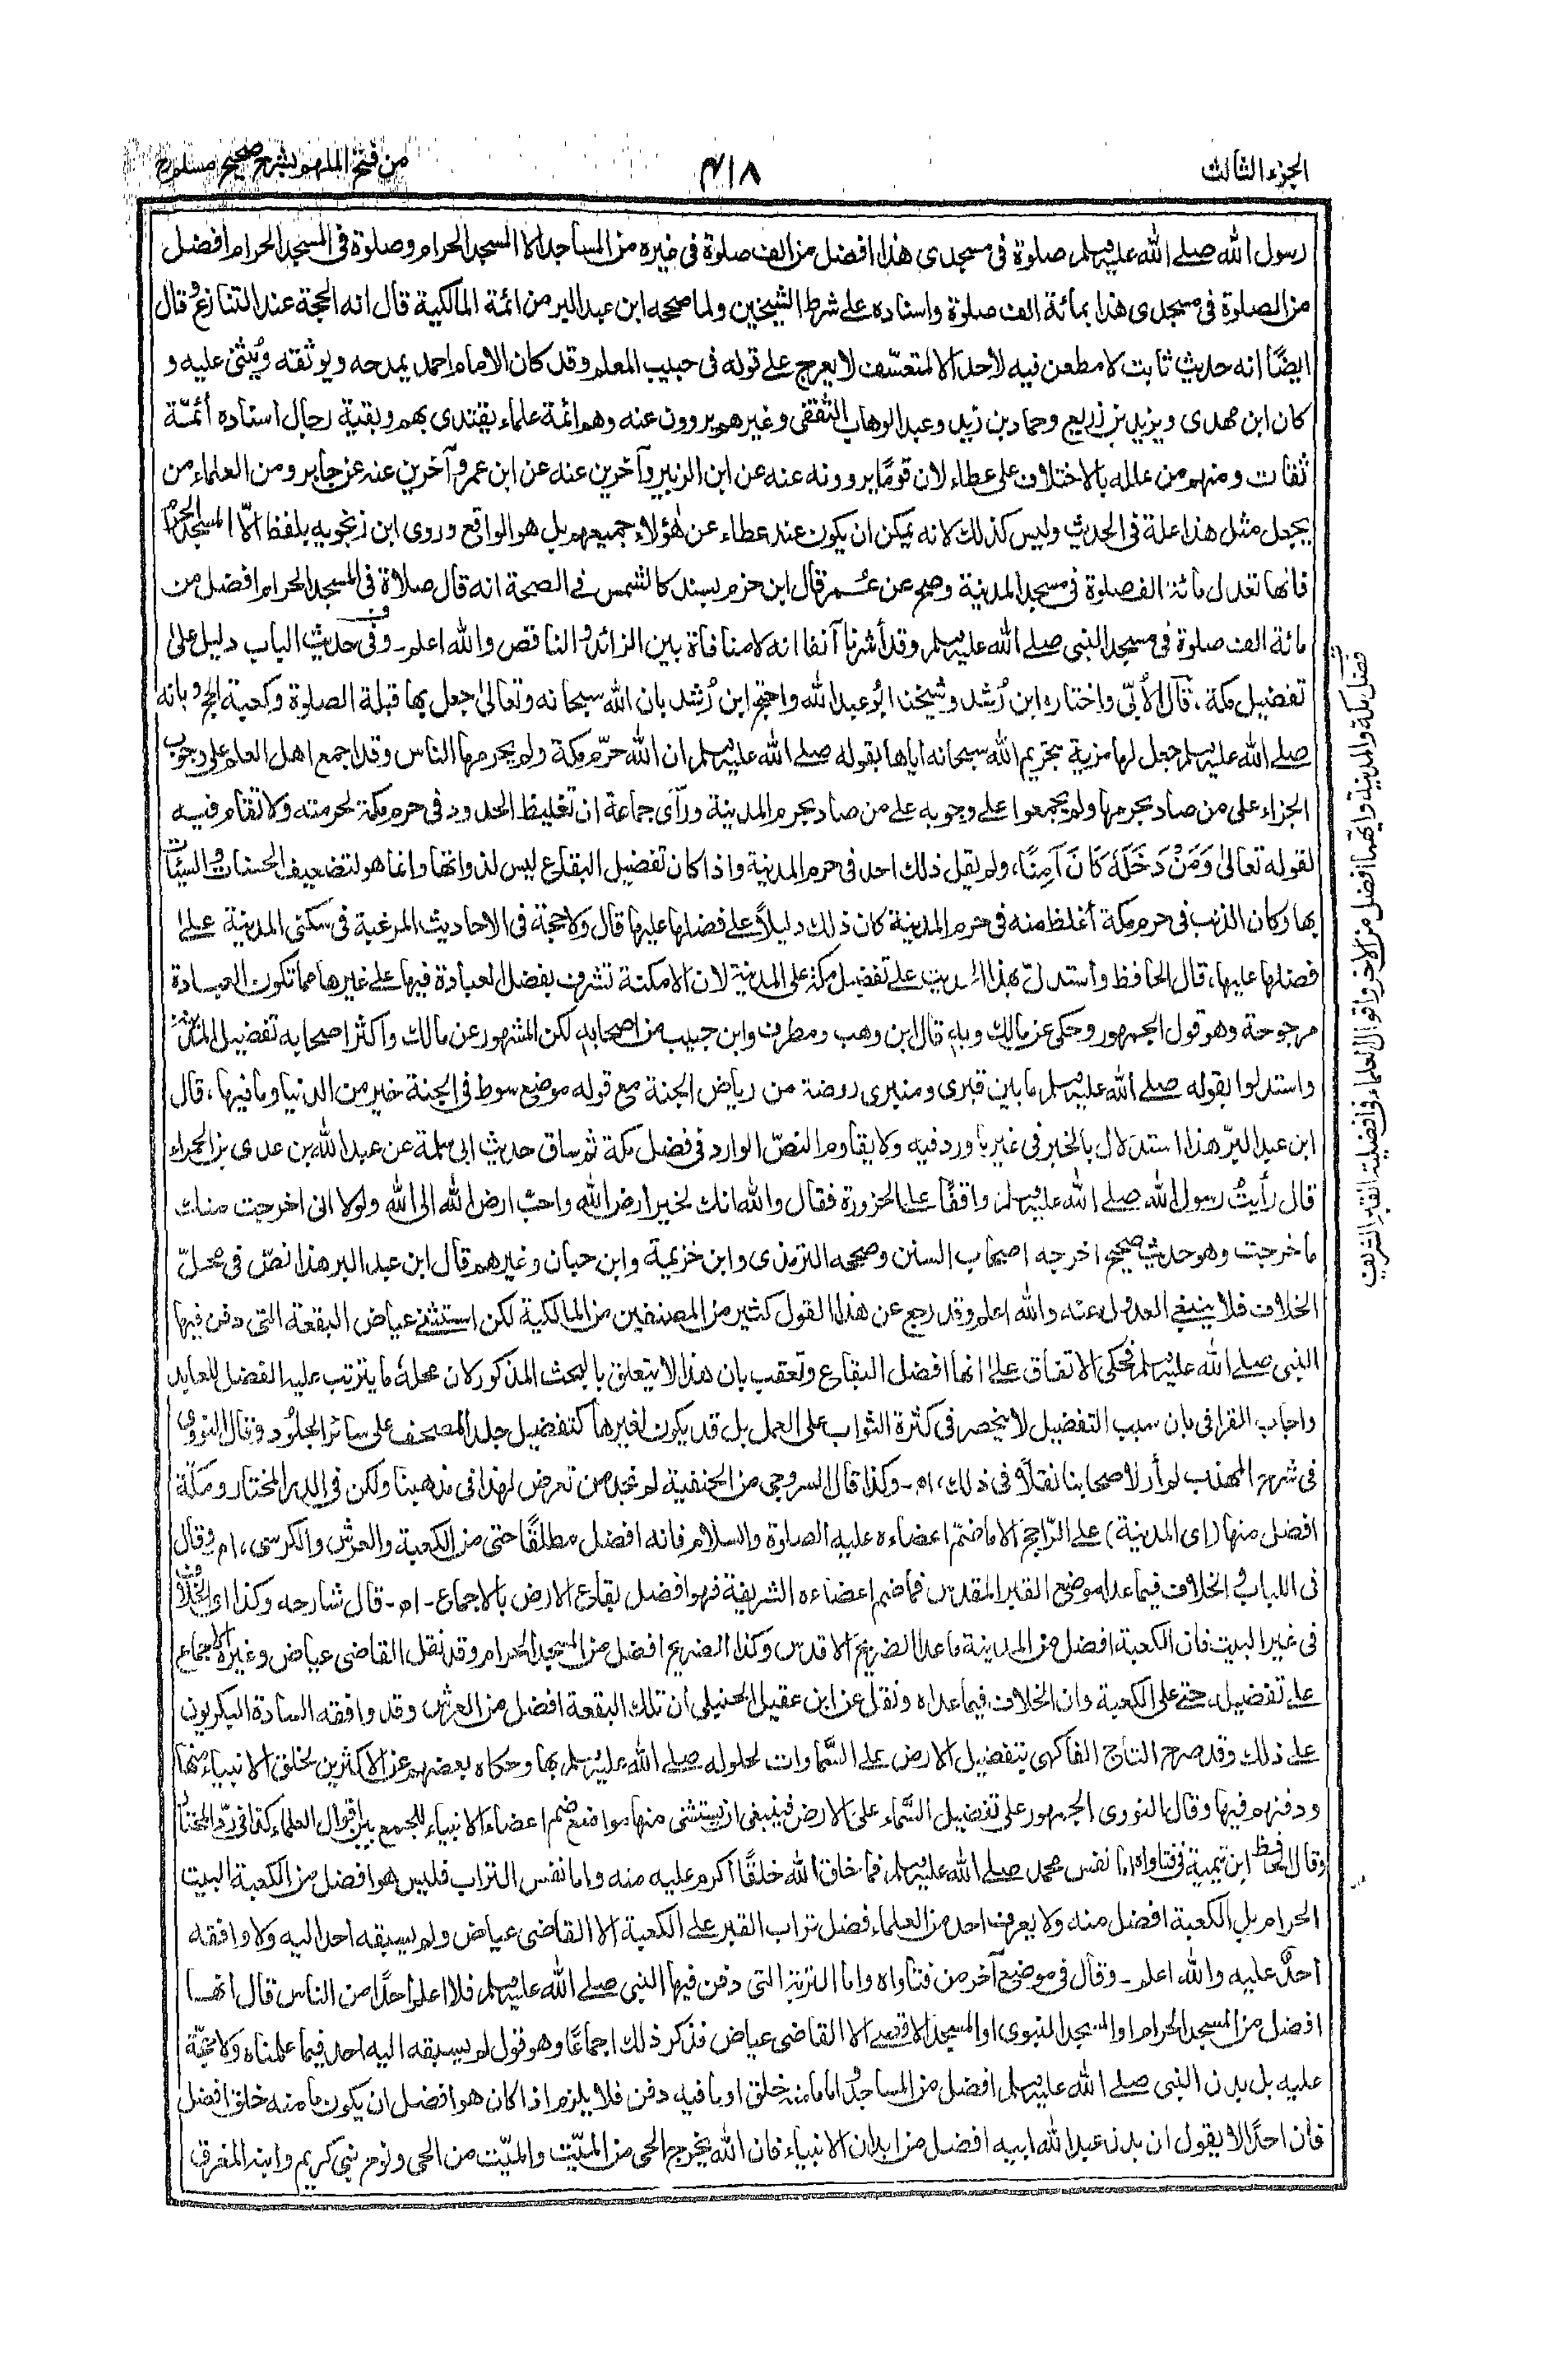 الجزء الثالث
٤١٨
من فتح الملهم بشرح صحيح مسلم ج
رسول الله صلے الله عليه وسلم صلوة فى مسجدى هذا افضل من الف صلوة فى غيره من المساجد الا المسجد الحرام وصلوة فى المسجد الحرام افضل
من الصلوة فى مسجدى هذا بمائة الف صلوة واسناده على شرط الشيخين ولما صححه ابن عبد البر من ائمة المالكية قال انه الحجة عند التنازع وقال
ايضًا انه حديث ثابت لا مطعن فيه لأحد الا لمتعسّف لا يعرج على قوله فى حبيب المعلم وقد كان الامام احمد يمدحه ويوثقه ويُثنى عليه و
كان ابن مهدى ويزيد بن زريع وحماد بن زيد وعبد الوهاب الثقفى وغيرهم يروون عنه وهم ائمة علماء يقتدى بهم وبقية رجال اسناده أئمّة
ثقات ومنهم من علله بالاختلاف على عطاء لان قومًا يروونه عنه عن ابن الزبير وآخرين عنه عن ابن عمر وآخرين عنه عن جابر ومن العلماء من
يجعل مثل هذا علة فى الحديث وليس كذلك لانه يمكن ان يكون عند عطاء عن هؤلاء جميعهم بل هو الواقع وروى ابن زنجويه بلفظ الّا المسجد الحرام
فانها تعدل مائة الف صلوة فى مسجد المدينة وصح عن عمر قال ابن حزم بسند كالشمس فى الصحة انه قال صلاة فى المسجد الحرام افضل من
مائة الف صلوة فى مسجد النبى صلے الله عليه وسلم وقد أشرنا آنفا انه لا منافاة بين الزائد والناقص والله اعلم ـ وفى حديث الباب دليل على
تفضيل مكة، قال الأبّى واختاره ابن رُشد وشيخنا ابو عبد الله واحتج ابن رُشد بان الله سبحانه وتعالى جعل بها قبلة الصلوة وكعبة الحج وبانه
صلے الله عليه وسلم جعل لها مزية بتحريم الله سبحانه اياها بقوله صلے الله عليه وسلم ان الله حرّم مكة ولم يحرمها الناس وقد اجمع اهل العلم على وجوب
الجزاء على من صاد بحرمها ولم يجمعوا على وجوبه على من صاد بحرم المدينة ورأى جماعة ان تغليظ الحدود فى حرم مكة لحرمته ولا تقام فيه
لقوله تعالى وَمَنْ دَخَلَهُ كَانَ آمِنًا، ولم يقل ذلك احد فى حرم المدينة واذا كان تفضيل البقاع ليس لذواتها وانما هو لتضعيف الحسنات والسيئات
بها وكان الذنب فى حرم مكة أغلظ منه فى حرم المدينة كان ذلك دليلاً على فضلها عليها قال ولا حجة فى الاحاديث المرغبة فى سكنى المدينة على
فضلها عليها، قال الحافظ وأستدلّ بهذا الحديث على تفضيل مكة على المدينة لان الامكنة تشرف بفضل العبادة فيها على غيرها مما تكون العبادة
مرجوحة وهو قول الجمهور وحكى عن مالك وبه قال ابن وهب ومطرف وابن حبيب من اصحابه لكن المشهور عن مالك واكثر اصحابه تفضيل المدينة
واستدلوا بقوله صلے الله عليه وسلم ما بين قبرى ومنبرى روضة من رياض الجنة مع قوله موضع سوط فى الجنة خير من الدنيا وما فيها، قال
ابن عبد البرّ هذا استدلال بالخبر فى غير ما ورد فيه ولا يقاوم النصّ الوارد فى فضل مكة ثم ساق حديث ابى سلمة عن عبد الله بن عدى بن الحمراء
قال رأيتُ رسول الله صلے الله عليه وسلم واقفًا على الحزورة فقال والله انك لخير ارض الله واحبّ ارض الله الى الله ولولا انى اخرجت منك
ما خرجت وهو حديث صحيح اخرجه اصحاب السنن وصححه الترمذى وابن خزيمة وابن حبان وغيرهم قال ابن عبد البر هذا نصّ فى محلّ
الخلاف فلا ينبغى العدول عنه والله اعلم وقد رجع عن هذا القول كثير من المصنفين من المالكية لكن استثنى عياض البقعة التى دفن فيها
النبى صلے الله عليه وسلم فحكى الاتفاق على انها افضل البقاع وتعقب بان هذا لا يتعلق بالبحث المذكور لان محله ما يترتب عليه الفضل للعابد
واجاب القرافى بان سبب التفضيل لا ينحصر فى كثرة الثواب على العمل بل قد يكون لغيرها كتفضيل جلد المصحف على سائر الجلود وقال النووى
فى شرح المهذب لم أر لاصحابنا نقلاً فى ذلك، اه ـ وكذا قال السروجى من الحنفية لم نجد من تعرض لهذا فى مذهبنا ولكن فى الدر المختار ومكّة
افضل منها (اى المدينة) على الرّاجح الا ما ضمّ اعضاءه عليه الصلوة والسلام فانه افضل مطلقًا حتى من الكعبة والعرش والكرسى، اه وقال
فى اللباب والخلاف فيما عدا موضع القبر المقدس فما ضم اعضاءه الشريفة فهو افضل بقاع الارض بالاجماع ـ اه ـ قال شارحه وكذا اى الخلاف
فى غير البيت فان الكعبة افضل من المدينة ما عدا الضريح الاقدس وكذا الضريح افضل من المسجد الحرام وقد نقل القاضى عياض وغيره الاجماع
على تفضيله حتى على الكعبة وان الخلاف فيما عداه ونقل عن ابن عقيل الحنبلى ان تلك البقعة افضل من العرش وقد وافقه السادة البكريون
على ذلك وقد صرح التاج الفاكهى بتفضيل الارض على السّماوات لحلوله صلے الله عليه وسلم بها وحكاه بعضهم عن الاكثرين لخلق الانبياء منها
ودفنهم فيها وقال النووى الجمهور على تفضيل السّماء على الارض فينبغى ان يستثنى منها مواضع ضم اعضاء الانبياء للجمع بين اقوال العلماء كذا فى ردّ المحتار
وقال الحافظ ابن تيمية فى فتاواه اما نفس محمد صلے الله عليه وسلم فما خلق الله خلقًا اكرم عليه منه واما نفس التراب فليس هو افضل من الكعبة البيت
الحرام بل الكعبة افضل منه ولا يعرف احد من العلماء فضل تراب القبر على الكعبة الا القاضى عياض ولم يسبقه احد اليه ولا وافقه
احدٌ عليه والله اعلم ـ وقال فى موضع آخر من فتاواه واما التربة التى دفن فيها النبى صلے الله عليه وسلم فلا اعلم أحدًا من الناس قال انها
افضل من المسجد الحرام او المسجد النبوى او المسجد الاقصى الا القاضى عياض فذكر ذلك اجماعًا وهو قول لم يسبقه اليه احد فيما علمناه ولا حجّة
عليه بل بدن النبى صلے الله عليه وسلم افضل من المساجد واما ما منه خلق او ما فيه دفن فلا يلزم اذا كان هو افضل ان يكون ما منه خلق افضل
فان احدًا لا يقول ان بدن عبد الله ابيه افضل من ابدان الانبياء فان الله يخرج الحى من الميّت والميّت من الحى ونوح نبى كريم وابنه المغرق
فضل مكة والمدينة وايتهما افضل من الاخر واقوال العلماء فى افضلية القبر الشريف